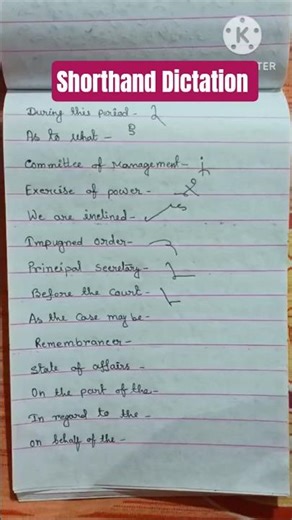 K
Shorthand Dictation
During this period -
As to what -
Committee of Management -
Exercise of power -
We are inclined -
Impugned order -
Principal Secretary -
Before the Court -
As the Case may be -
Remembrancer -
State of affairs -
On the part of the -
In regard to the -
on behalf of the -